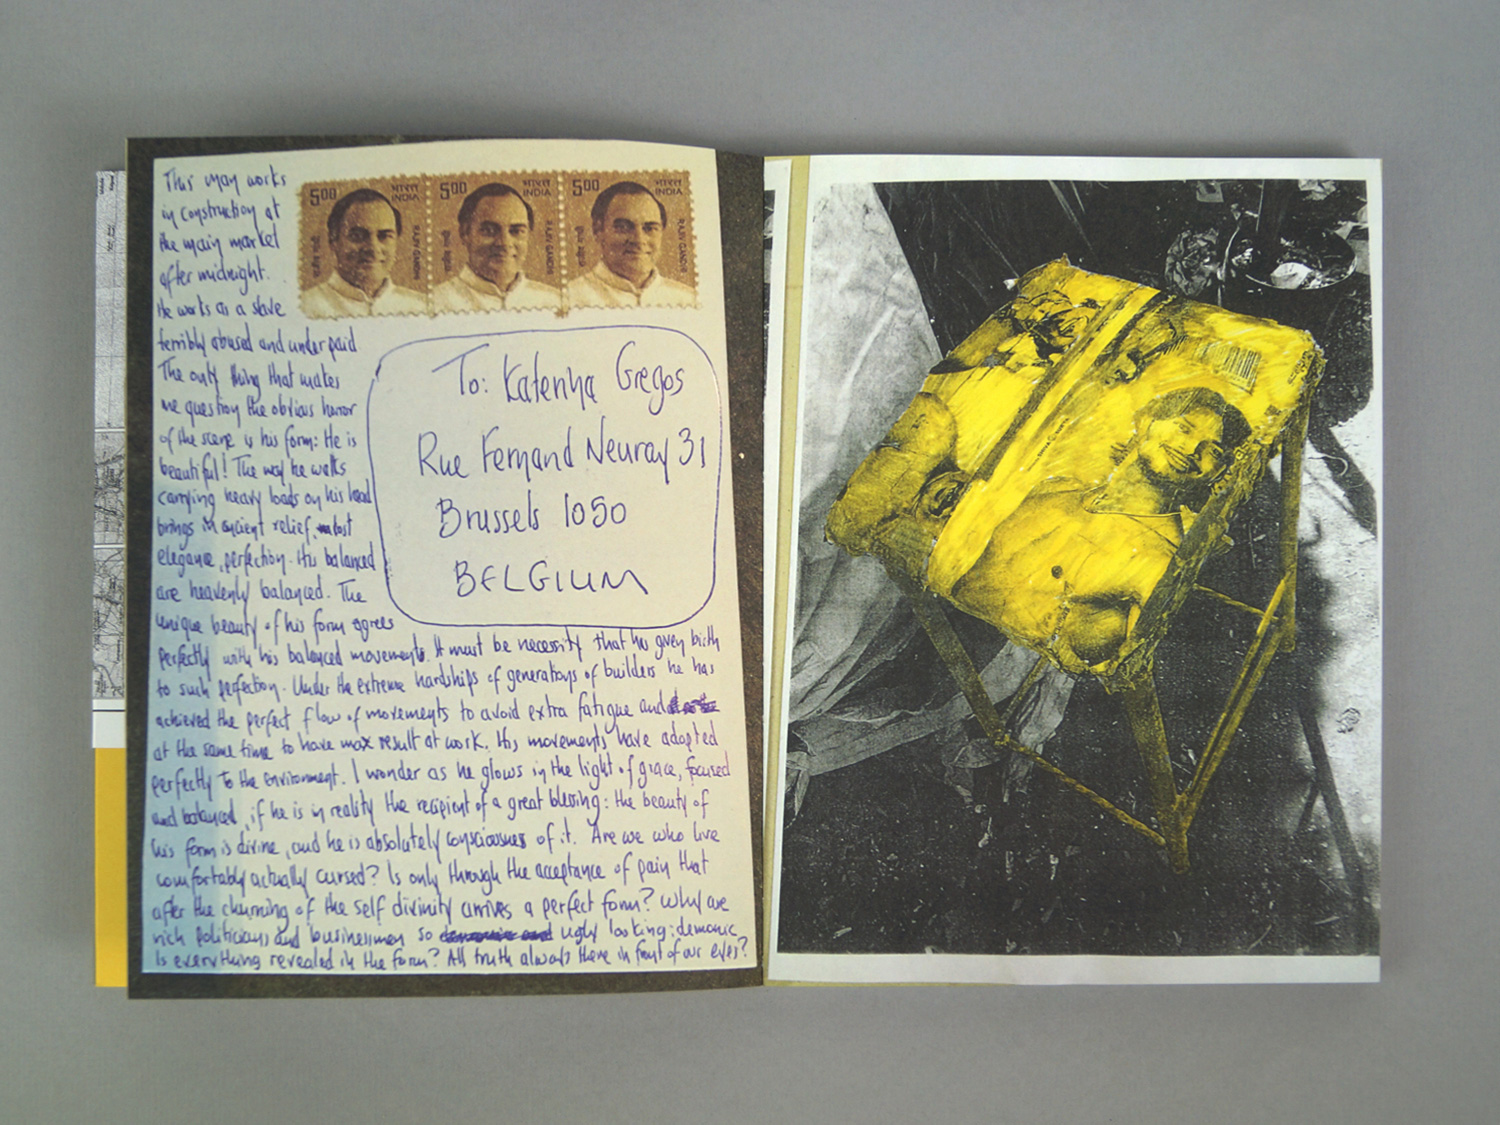 This man works
in construction at
the main market
after midnight.
He works as a slave
terribly abused and under paid
The only thing that makes
me question the obvious horror
of the scene is his form: He is
beautiful! The way he walks
carrying heavy loads on his head
brings in ancient relief, lost
elegance, perfection. His balanced
are heavenly balanced. The
unique beauty of his form agrees
perfectly with his balanced movements. It must be necessity that has given birth
to such perfection. Under the extreme hardships of generations of builders he has
achieved the perfect flow of movements to avoid extra fatigue and
at the same time to have max result at work. His movements have adapted
perfectly to the environment. I wonder as he glows in the light of grace, focused
and balanced, if he is in reality the recipient of a great blessing: the beauty of
his form is divine, and he is absolutely consciousness of it. Are we who live
comfortably actually cursed? Is only through the acceptance of pain that
after the churning of the self divinity arrives a perfect form? Why are
rich politicians and businessmen so ugly looking: demonic
Is everything revealed in the form? All truth always there in front of our eyes?
5.00 भारत INDIA RAJIV GANDHI
5.00 भारत INDIA RAJIV GANDHI
5.00 भारत INDIA RAJIV GANDHI
To: Katerina Gregos
Rue Fernand Neuray 31
Brussels 1050
BELGIUM